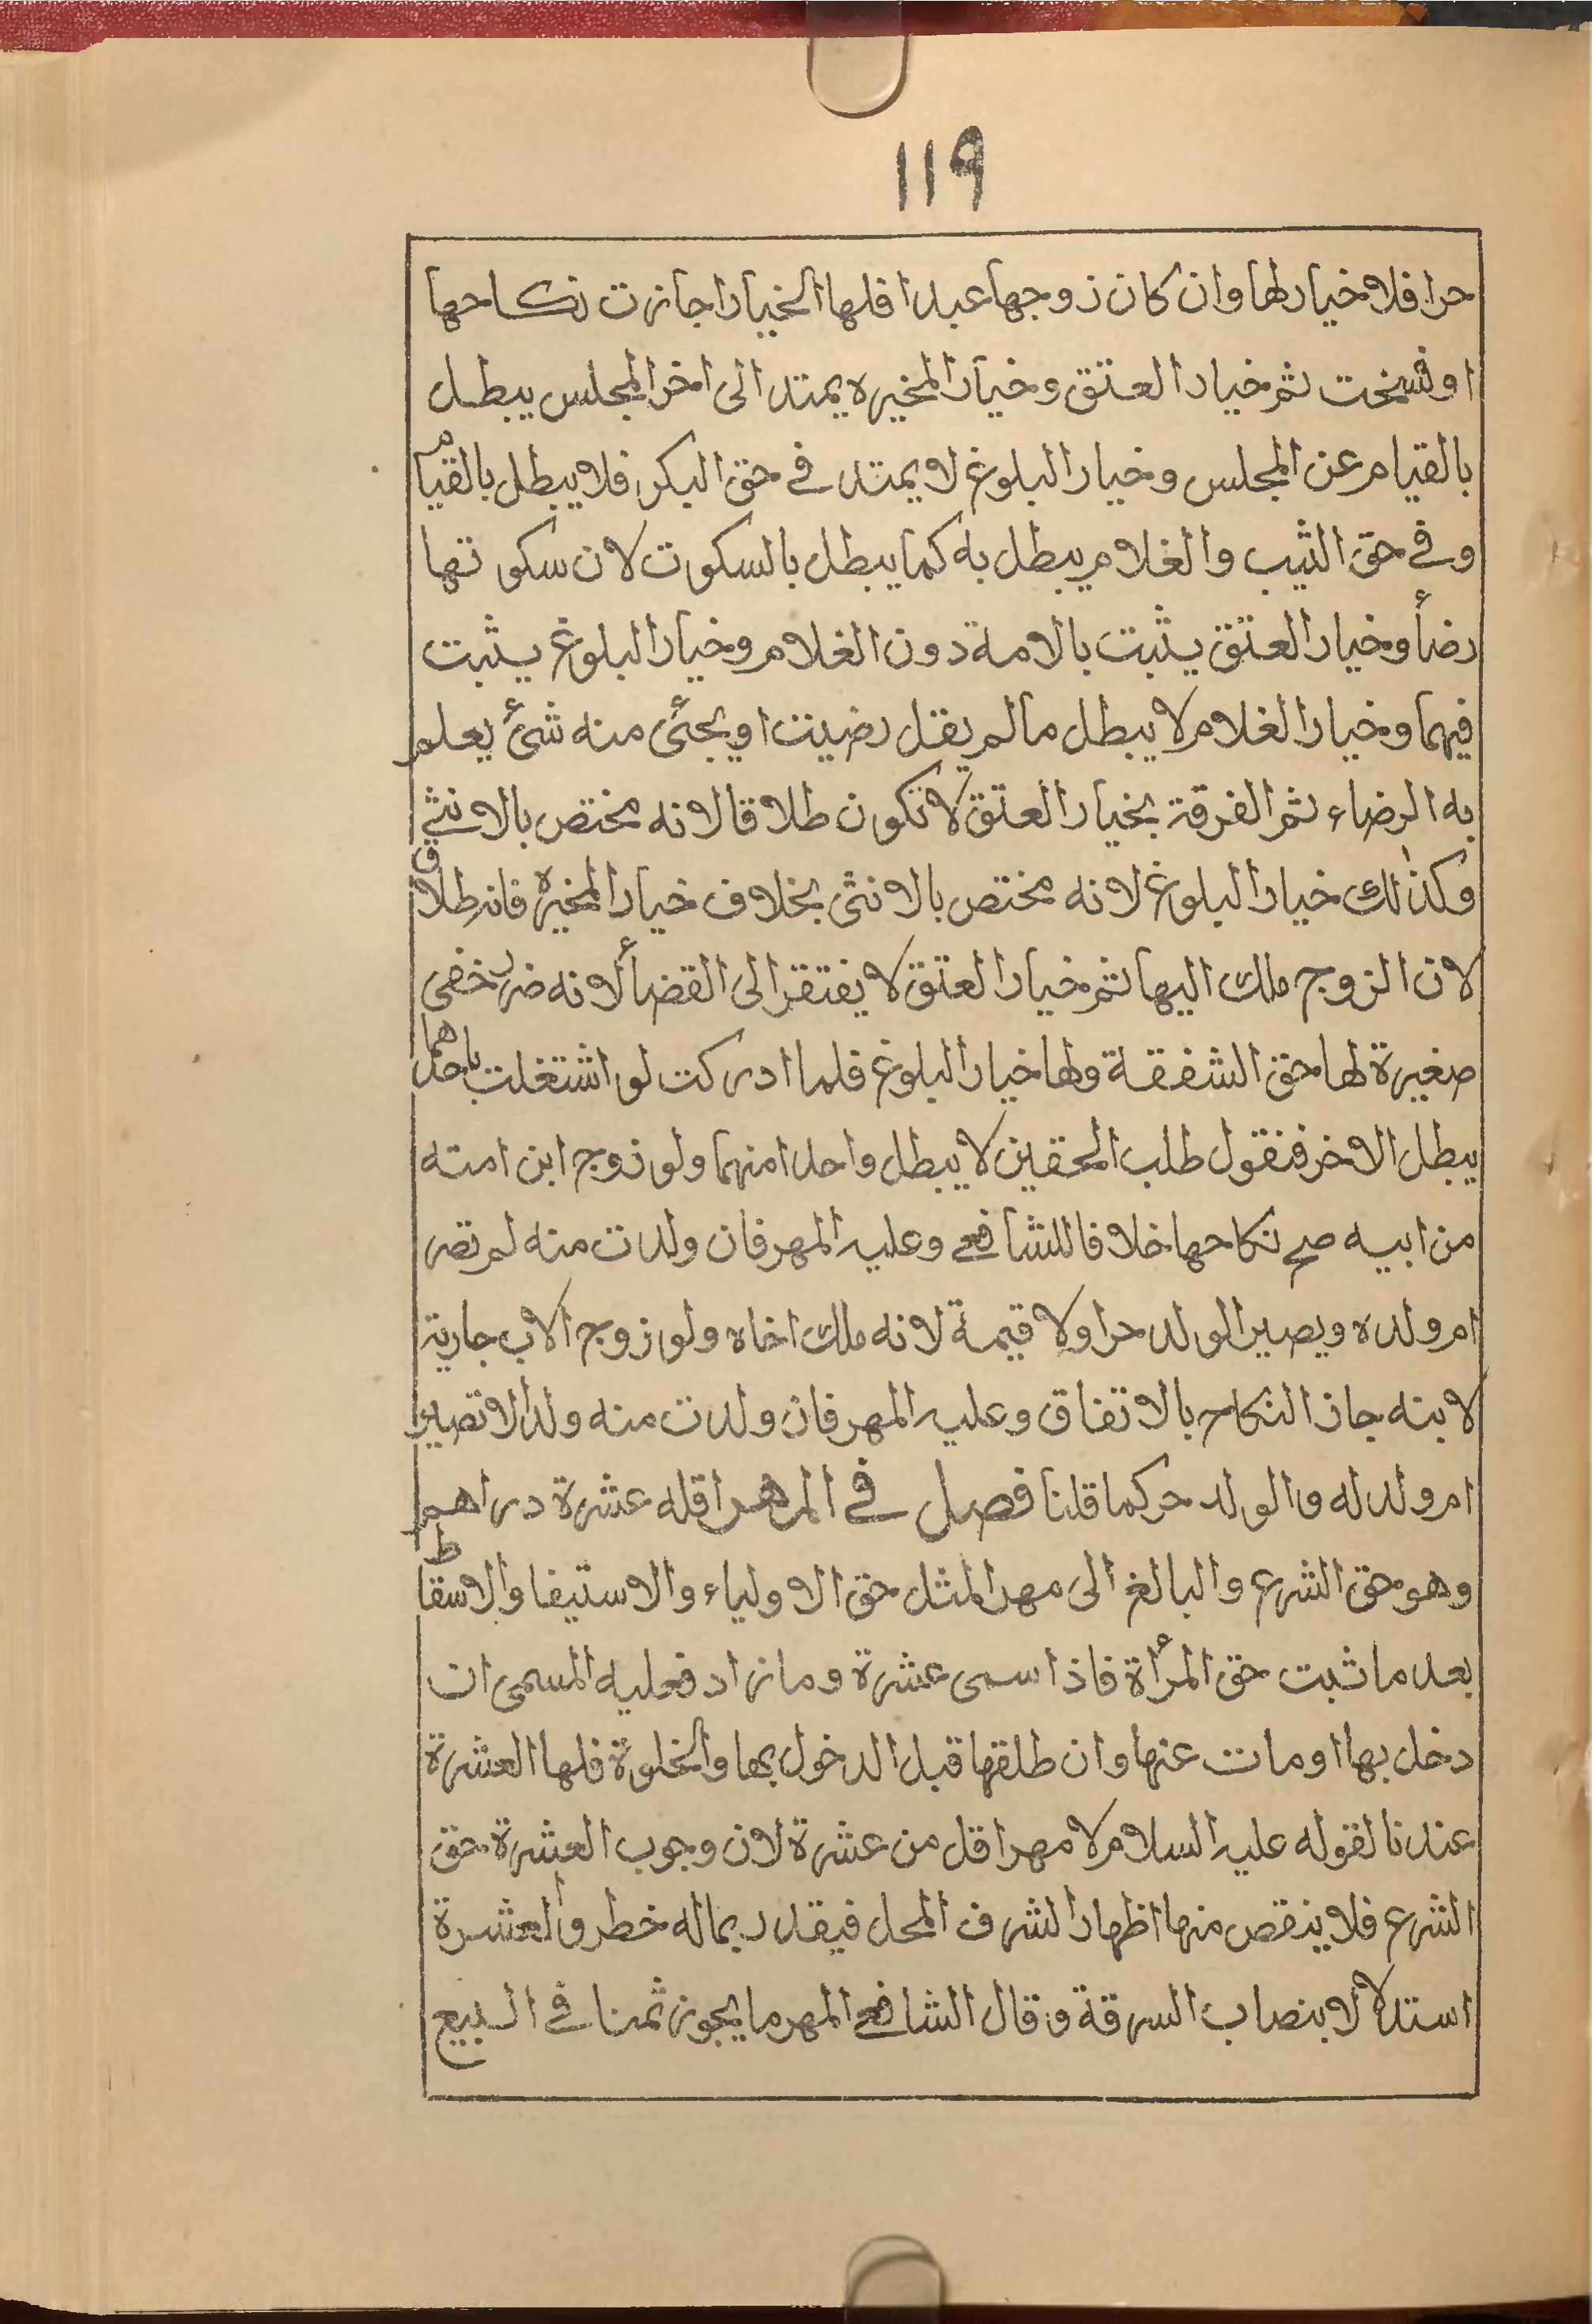 119
حرا فلا خيار لها وان كان زوجها عبدا فلها الخيار اجازت نكاحها
او فسخت ثم خيار العتق وخيار المخيره يمتد الى اخر المجلس يبطل
بالقيام عن المجلس وخيار البلوغ لا يمتد في حق البكر فلا يبطل بالقيام
وفي حق الثيب والغلام يبطل به كما يبطل بالسكوت لان سكوتها
رضأ وخيار العتق يثبت بالامة دون الغلام وخيار البلوغ يثبت
فيهما وخيار الغلام لا يبطل مالم يقل رضيت او يجئ منه شئ يعلم
به الرضاء ثم الفرقة بخيار العتق لا تكون طلاقا لانه مختص بالانثى
وكذلك خيار البلوغ لانه مختص بالانثى بخلاف خيار المخيره فانه طلاق
لان الزوج ملك اليها ثم خيار العتق لا يفتقر الى القضأ لانه ضرر خفى
صغيرة لها حق الشفقة ولها خيار البلوغ فلما ادركت لو اشتغلت باحدهما
يبطل الاخر فنقول طلب المحقين لا يبطل واحدا منهما ولو زوج ابن امته
من ابيه صح نكاحها خلافا للشافعي وعليه المهر فان ولدت منه لم تصر
ام ولده ويصير الولد حرا ولا قيمة لانه ملك اخاه ولو زوج الاب جارية
لابنه جاز النكاح بالاتفاق وعليه المهر فان ولدت منه ولدا لا تصير
ام ولد له والولد حر كما قلنا فصل في المهر اقله عشرة دراهم
وهو حق الشرع والبالغ الى مهر المثل حق الاولياء والاستيفا والاسقاط
بعد ما ثبت حق المرأة فاذا سمى عشرة وما زاد فعليه المسمى ان
دخل بها او مات عنها وان طلقها قبل الدخول بها والخلوة فلها العشرة
عندنا لقوله عليه السلام لا مهر اقل من عشرة لان وجوب العشرة حق
الشرع فلا ينقص منها اظهارا لشرف المحل فيقدر بماله خطر والعشرة
استدلالا بنصاب السرقة وقال الشافعي المهر ما يجوز ثمنا في البيع